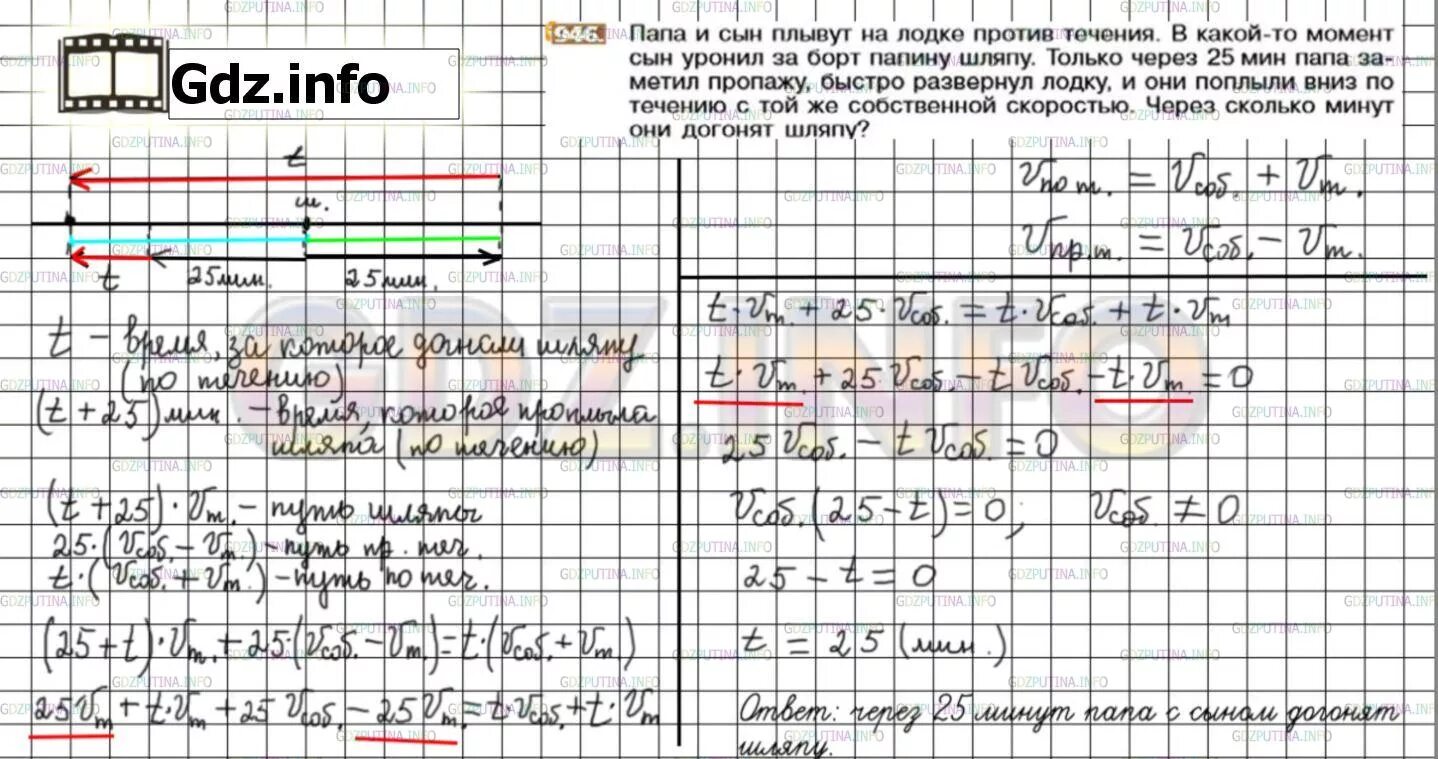 Gdz.info
946.
Папа и сын плывут на лодке против течения. В какой-то момент
сын уронил за борт папину шляпу. Только через 25 мин папа за-
метил пропажу, быстро развернул лодку, и они поплыли вниз по
течению с той же собственной скоростью. Через сколько минут
они догонят шляпу?
t
ш.
t 25мин. 25мин.
t – время, за которое догнали шляпу
(по течению)
(t + 25) мин. – время, которое проплыла
шляпа (по течению)
(t + 25) · Vт. – путь шляпы
25·(Vсоб. – Vт.) – путь пр. теч.
t·(Vсоб. + Vт.) – путь по теч.
(25+t)·Vт. + 25·(Vсоб. – Vт.) = t·(Vсоб. + Vт.)
25Vт + t·Vт + 25 Vсоб. – 25Vт. = t·Vсоб. + t·Vт
Vпо т. = Vсоб. + Vт.
Vпр.т. = Vсоб. – Vт.
t·Vт. + 25·Vсоб. = t·Vсоб. + t·Vт
t·Vт. + 25·Vсоб. – tVсоб. – t·Vт. = 0
25Vсоб. – tVсоб. = 0
Vсоб.(25 – t) = 0; Vсоб. ≠ 0
25 – t = 0
t = 25 (мин.)
Ответ: через 25 минут папа с сыном догонят
шляпу.
GDZ.INFO
GDZPUTINA.INFO